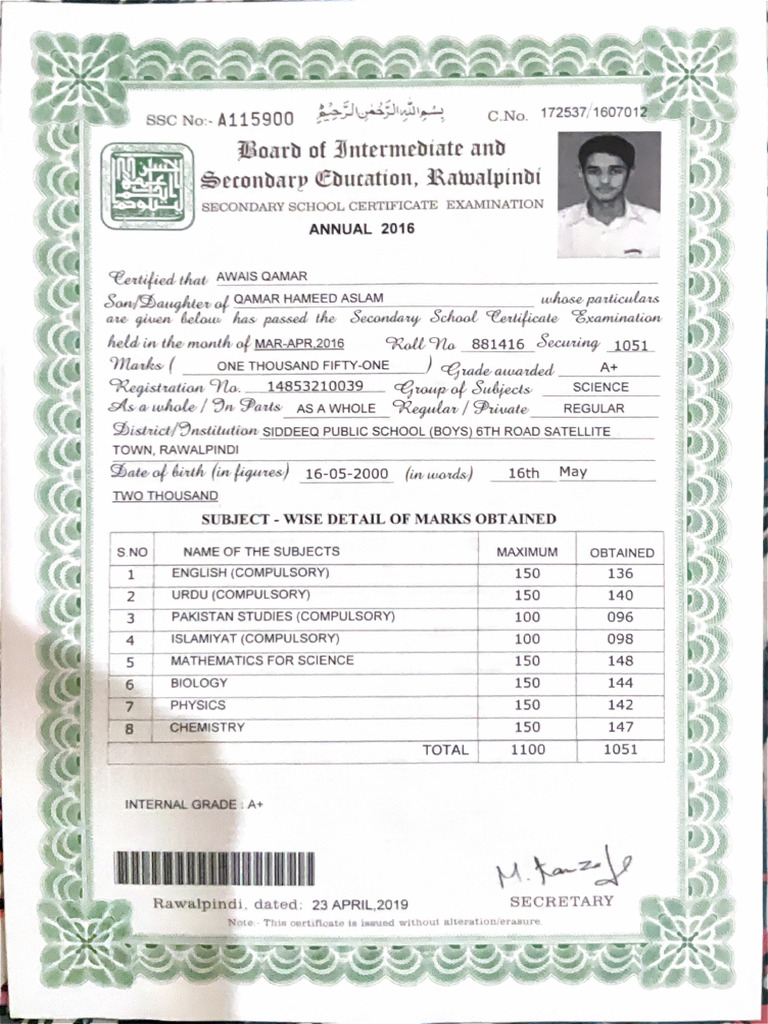 SSC No:- A115900 بِسْمِ اللهِ الرَّحْمٰنِ الرَّحِيْمِ C.No. 172537/1607012
Board of Intermediate and
Secondary Education, Rawalpindi
SECONDARY SCHOOL CERTIFICATE EXAMINATION
ANNUAL 2016
Certified that AWAIS QAMAR
Son/Daughter of QAMAR HAMEED ASLAM whose particulars
are given below has passed the Secondary School Certificate Examination
held in the month of MAR-APR,2016 Roll No 881416 Securing 1051
Marks ( ONE THOUSAND FIFTY-ONE ) Grade awarded A+
Registration No. 14853210039 Group of Subjects SCIENCE
As a whole / In Parts AS A WHOLE Regular / Private REGULAR
District/Institution SIDDEEQ PUBLIC SCHOOL (BOYS) 6TH ROAD SATELLITE
TOWN, RAWALPINDI
Date of birth (in figures) 16-05-2000 (in words) 16th May
TWO THOUSAND
SUBJECT - WISE DETAIL OF MARKS OBTAINED
S.NO NAME OF THE SUBJECTS MAXIMUM OBTAINED
1 ENGLISH (COMPULSORY) 150 136
2 URDU (COMPULSORY) 150 140
3 PAKISTAN STUDIES (COMPULSORY) 100 096
4 ISLAMIYAT (COMPULSORY) 100 098
5 MATHEMATICS FOR SCIENCE 150 148
6 BIOLOGY 150 144
7 PHYSICS 150 142
8 CHEMISTRY 150 147
TOTAL 1100 1051
INTERNAL GRADE : A+
Rawalpindi, dated: 23 APRIL,2019
SECRETARY
Note:- This certificate is issued without alteration/erasure.